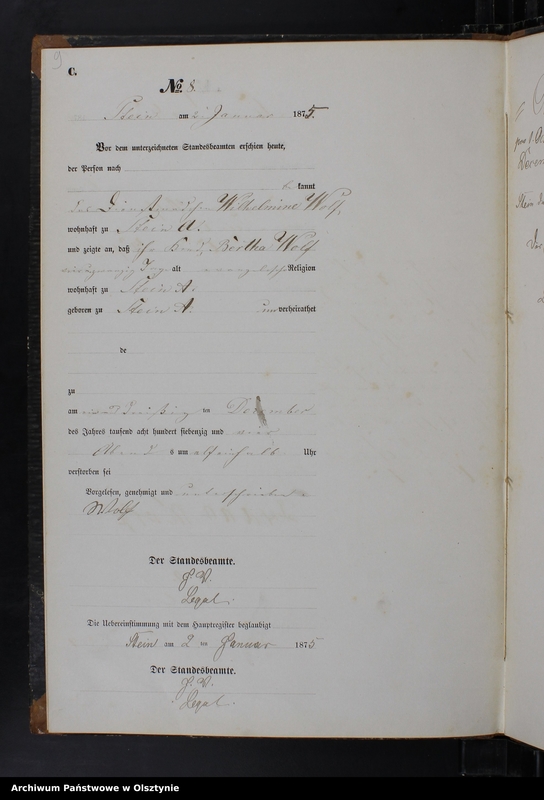 9
C.
No. 8.
Stein am 2. Januar 1875.
Vor dem unterzeichneten Standesbeamten erschien heute,
der Person nach
kannt
das Dienstmädchen Wilhelmine Wolf,
wohnhaft zu Stein A.
und zeigte an, daß ihr Kind, Bertha Wolf
Tage alt evangelischer Religion
wohnhaft zu Stein A.
geboren zu Stein A. unverheirathet
de
zu
am einunddreißig ten Dezember
des Jahres tausend acht hundert siebenzig und vier
Abend s um elf einhalb Uhr
verstorben sei
Vorgelesen, genehmigt und unterschrieben
Wolf
Der Standesbeamte.
J. V.
Legal.
Die Uebereinstimmung mit dem Hauptregister beglaubigt
Stein am 2 ten Januar 1875
Der Standesbeamte.
J. V.
Legal.
Stein d
Archiwum Państwowe w Olsztynie